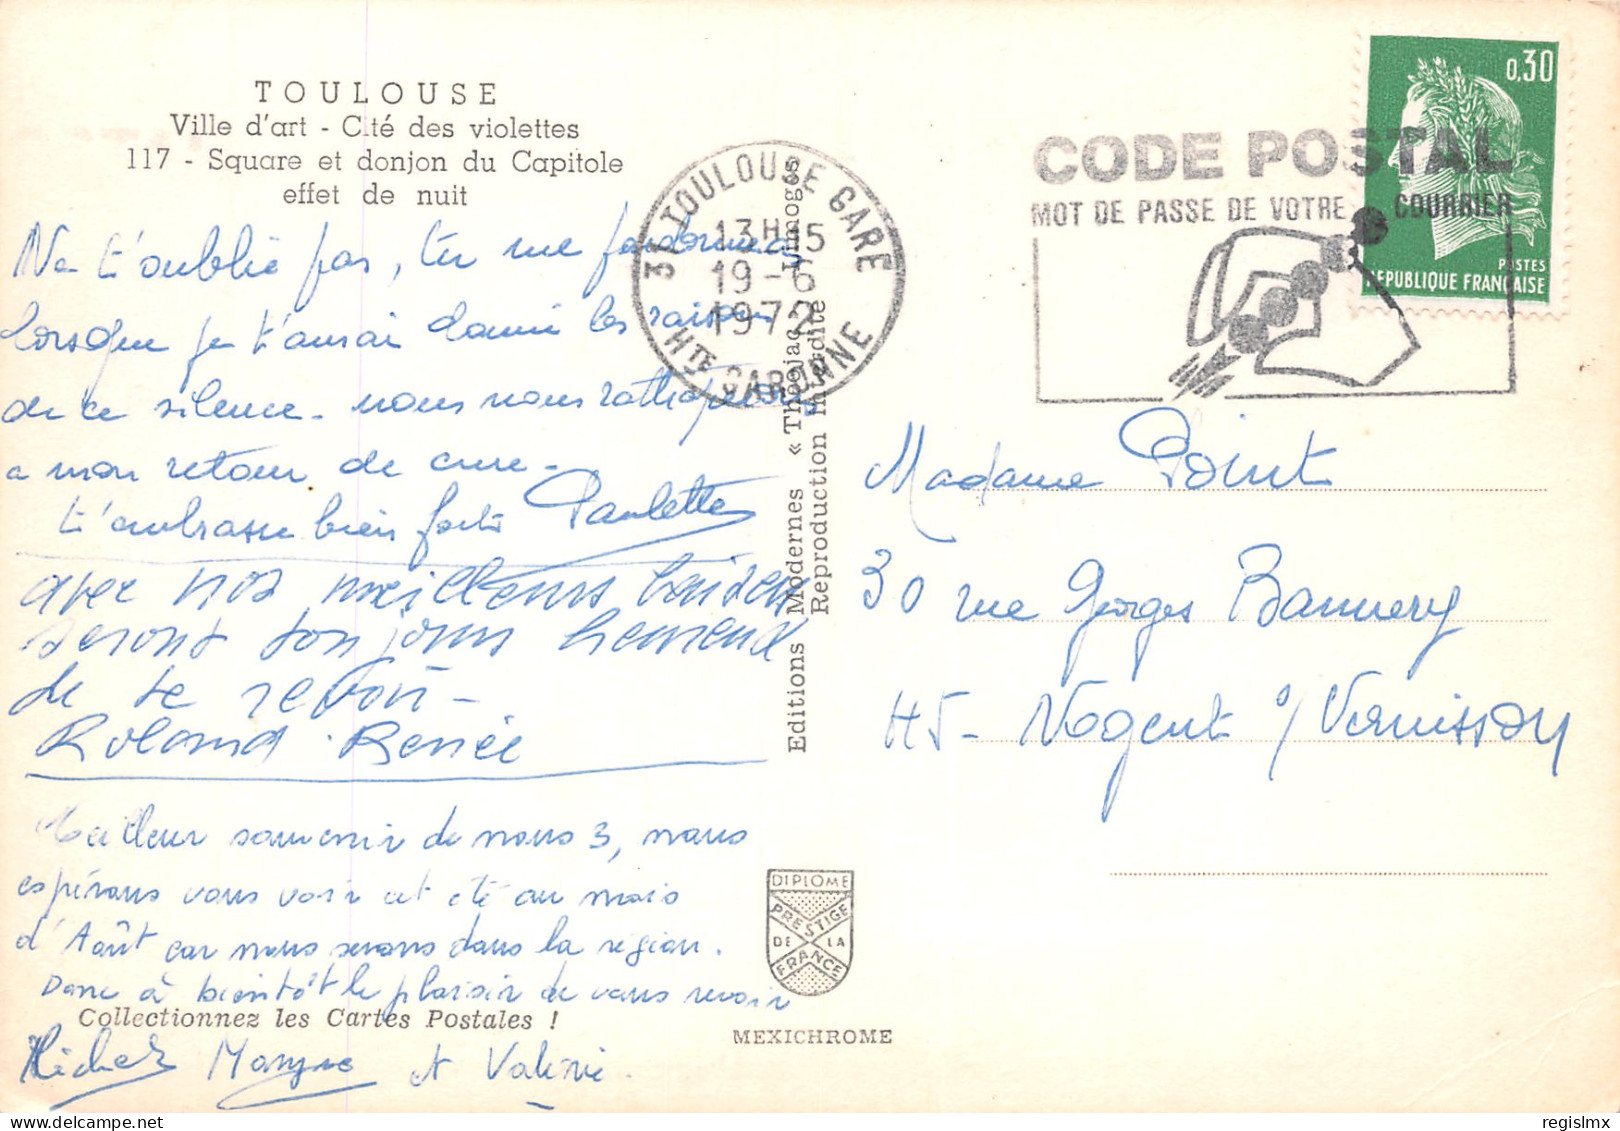 TOULOUSE
Ville d'art - Cité des violettes
117 - Square et donjon du Capitole
effet de nuit
Ne t'oublie pas, tu me pardonneras
lorsque je t'aurai donné les raisons
de ce silence. nous nous rattraperons
a mon retour de cure.
t'embrasse bien forte Paulette
avec nos meilleurs baisers
serons toujours heureux
de te revoir -
Roland Renée
Meilleur souvenir de nous 3, nous
espérons vous voir cet été au mois
d'Août car nous serons dans la région.
Donc à bientôt le plaisir de vous revoir
Collectionnez les Cartes Postales !
Michel Maryse et Valérie.
31 TOULOUSE GARE
13H15
19-6
1972
HTE GARONNE
Editions Modernes « Théojac » Limoges
Reproduction Interdite
DIPLOME
PRESTIGE
DE LA
FRANCE
MEXICHROME
CODE POSTAL
MOT DE PASSE DE VOTRE COURRIER
0,30
POSTES
REPUBLIQUE FRANÇAISE
Madame Point
30 rue Georges Bannery
45 - Nogent s/ Vernisson
regislmx